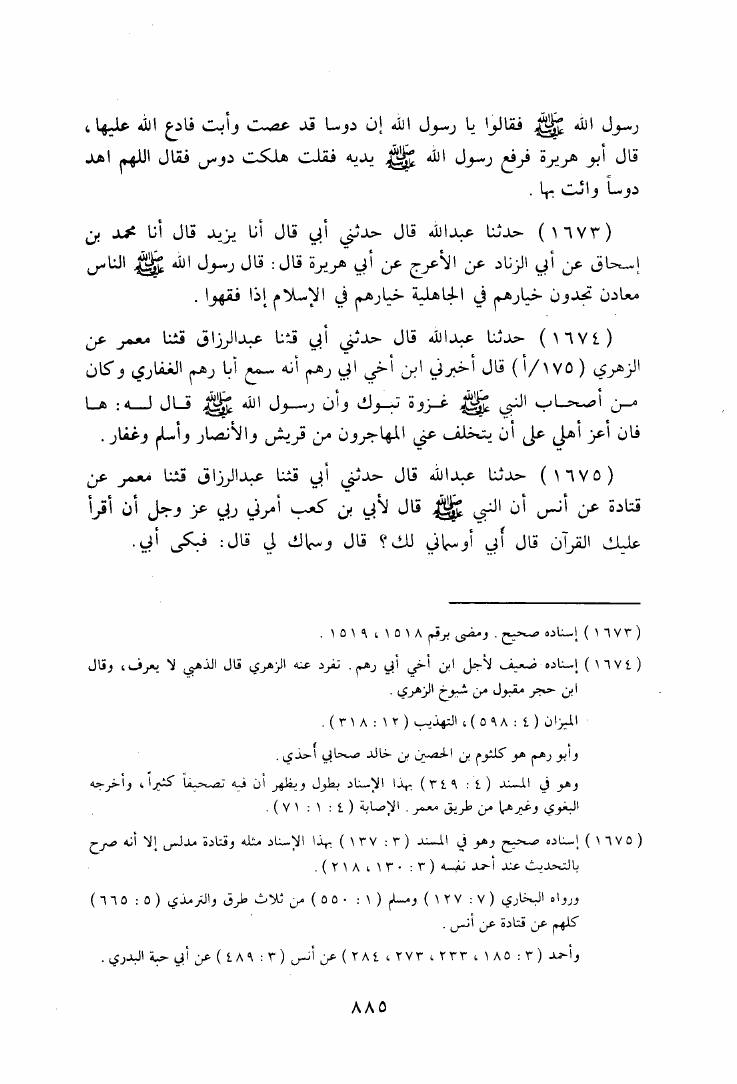 رسول الله ﷺ فقالوا يا رسول الله إن دوسا قد عصت وأبت فادع الله عليها،
قال أبو هريرة فرفع رسول الله ﷺ يديه فقلت هلكت دوس فقال اللهم اهد
دوساً وائت بها .
(١٦٧٣) حدثنا عبدالله قال حدثني أبي قال أنا يزيد قال أنا محمد بن
إسحاق عن أبي الزناد عن الأعرج عن أبي هريرة قال: قال رسول الله ﷺ الناس
معادن تجدون خيارهم في الجاهلية خيارهم في الإسلام إذا فقهوا .
(١٦٧٤) حدثنا عبدالله قال حدثني أبي قثنا عبدالرزاق قثنا معمر عن
الزهري (١٧٥/أ) قال أخبرني ابن أخي ابي رهم أنه سمع أبا رهم الغفاري وكان
مـن أصحـاب النبي ﷺ غـزوة تبـوك وأن رسـول الله ﷺ قـال لـه: هـا
فان أعز أهلي على أن يتخلف عني المهاجرون من قريش والأنصار وأسلم وغفار.
(١٦٧٥) حدثنا عبدالله قال حدثني أبي قثنا عبدالرزاق قثنا معمر عن
قتادة عن أنس أن النبي ﷺ قال لأبي بن كعب أمرني ربي عز وجل أن أقرأ
عليك القرآن قال أبي أوسماني لك؟ قال وسماك لي قال: فبكى أبي.
(١٦٧٣) إسناده صحيح. ومضى برقم ١٥١٨، ١٥١٩ .
(١٦٧٤) إسناده ضعيف لأجل ابن أخي أبي رهم. تفرد عنه الزهري قال الذهبي لا يعرف، وقال
ابن حجر مقبول من شيوخ الزهري .
الميزان (٤: ٥٩٨)، التهذيب (١٢: ٣١٨).
وأبو رهم هو كلثوم بن الحصين بن خالد صحابي أحذي.
وهو في المسند (٤: ٣٤٩) بهذا الإسناد بطول ويظهر أن فيه تصحيفاً كثيراً، وأخرجه
البغوي وغيرهما من طريق معمر. الإصابة (٤: ١: ٧١).
(١٦٧٥) إسناده صحيح وهو في المسند (٣: ١٣٧) بهذا الإسناد مثله وقتادة مدلس إلا أنه صرح
بالتحديث عند أحمد نفسه (٣: ١٣٠، ٢١٨).
ورواه البخاري (٧: ١٢٧) ومسلم (١: ٥٥٠) من ثلاث طرق والترمذي (٥: ٦٦٥)
كلهم عن قتادة عن أنس .
وأحمد (٣: ١٨٥، ٢٣٣، ٢٧٣، ٢٨٤) عن أنس (٣: ٤٨٩) عن أبي حبة البدري .
٨٨٥